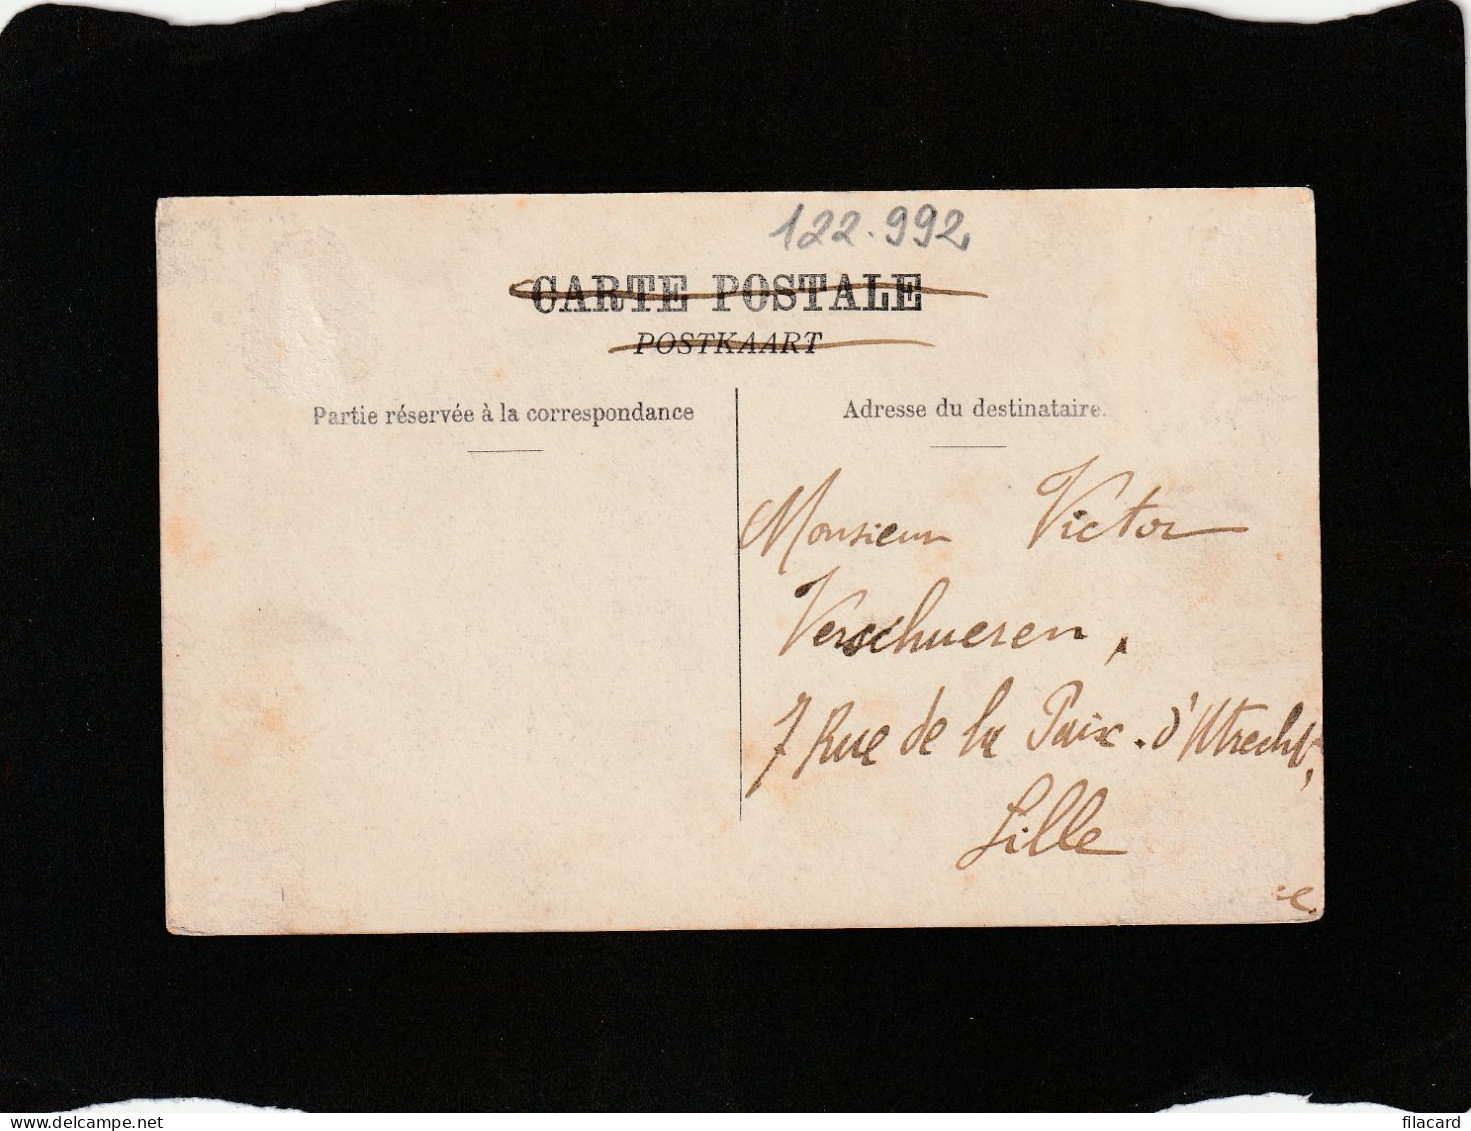 122.992
CARTE POSTALE
POSTKAART
Partie réservée à la correspondance
Adresse du destinataire.
Monsieur Victor
Verschueren,
7 Rue de la Paix. d'Utrecht,
Lille
filacard